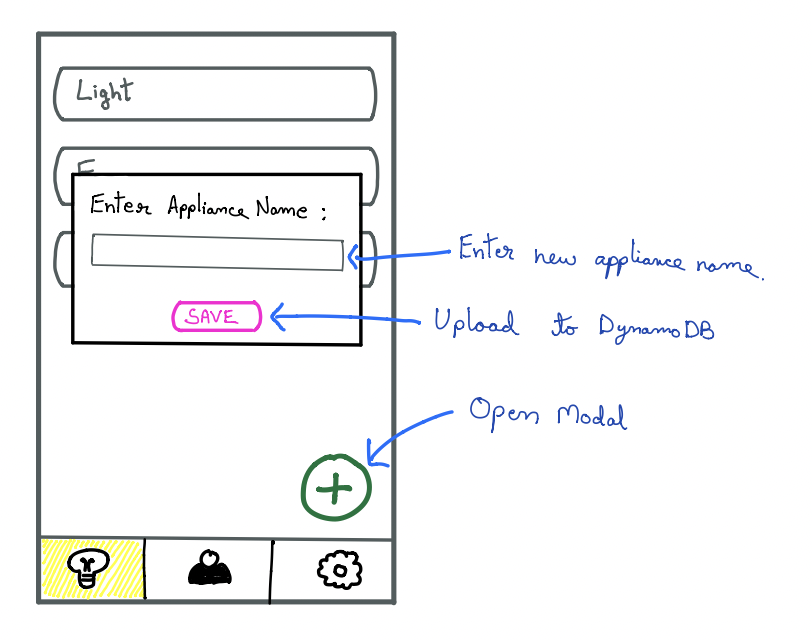 Light
F
Enter Appliance Name :
Enter new appliance name.
SAVE
Upload to DynamoDB
Open Modal